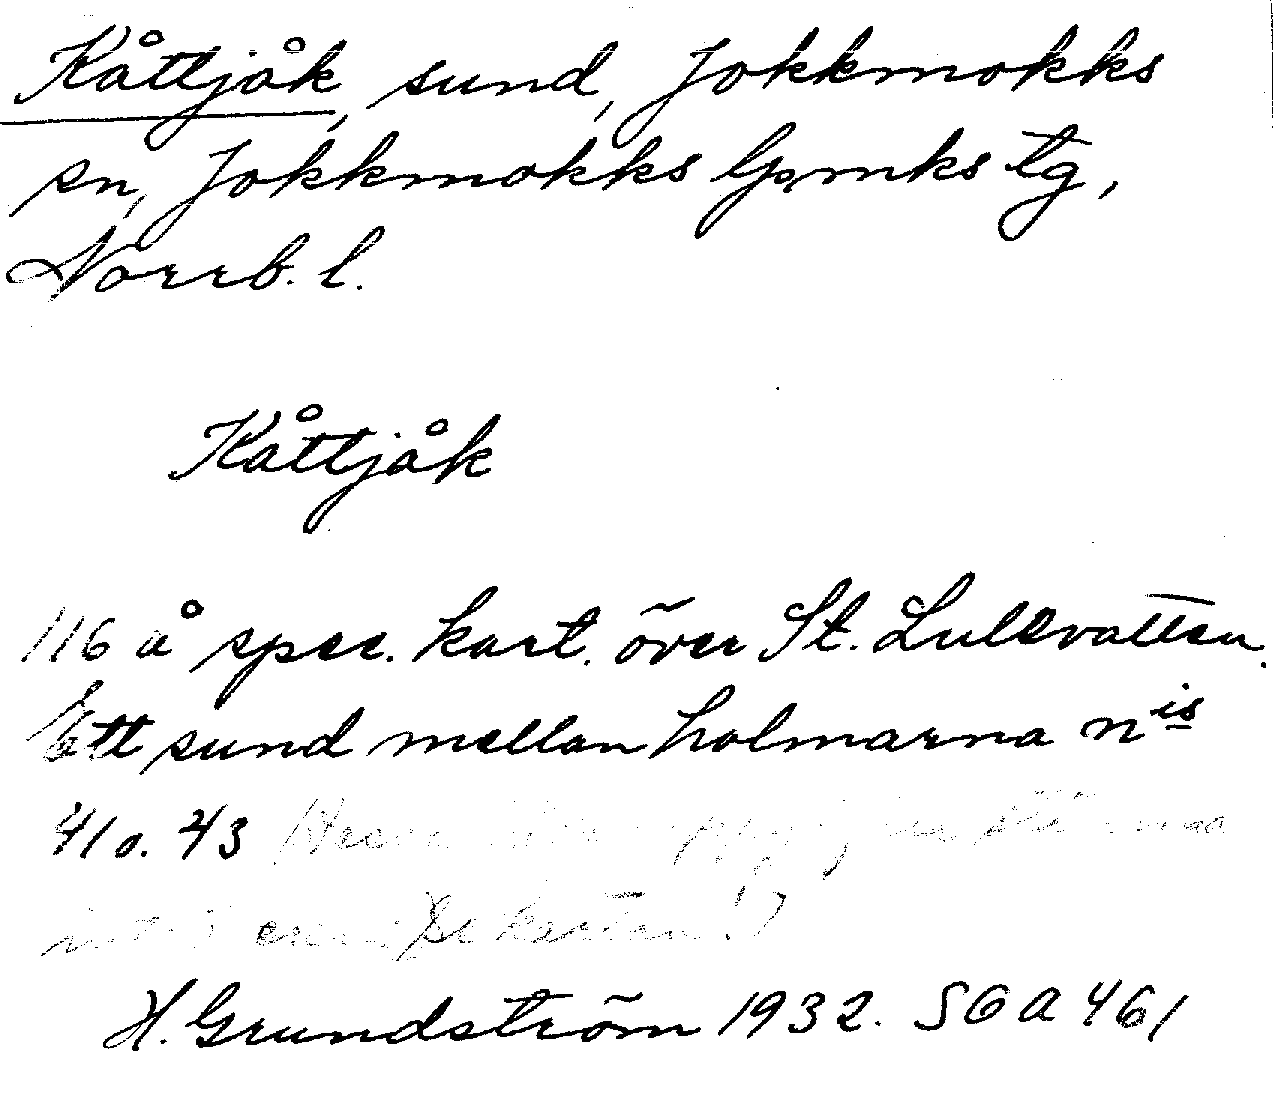 Kåttjåk, sund, Jokkmokks
sn, Jokkmokks lpmks tg,
Norrb. l.
Kåttjåk
116 å spec. kart. över St. Lulevatten.
Ett sund mellan holmarna n is
41 o. 43
kartan!)
H. Grundström 1932. SOA 461